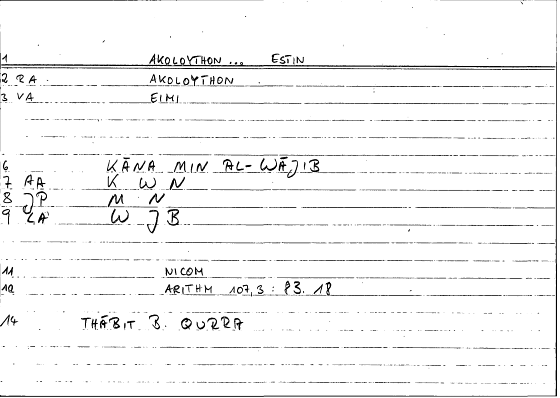 1 AKOLOYTHON ... ESTIN
2 RA AKOLOYTHON
3 VA EIMI
6 KĀNA MIN AL-WĀJIB
7 AA K W N
8 JP M N
9 LA W J B
11 NICOM
12 ARITHM 107,3 : 83. 18
14 THĀBIT B. QURRA